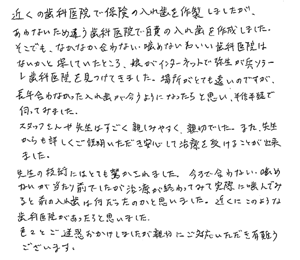 近くの歯科医院で保険の入れ歯を作製しましたが、
あわないため違う歯科医院で自費の入れ歯を作成しました。
そこでも、なかなか合わない・噛めない！いい歯科医院は
ないかと探していたところ、娘がインターネットで弥生が丘ソノー
レ歯科医院を見つけてきました。場所がとても遠いのですが、
長年合わなかった入れ歯が合うようになったらと思い、半信半疑で
伺ってみました。
スタッフさんや先生はすごく親しみやすく、親切でした。また、先生
からも詳しくご説明いただき安心して治療を受けることが出来
ました。
先生の技術にはとても驚かされました。今まで合わない・噛め
ないが当たり前でしたが治療が終わってみて実際に噛んでみ
ると前の入れ歯は何だったのかと思いました。近くにこのような
歯科医院があったらと思いました。
色々とご迷惑おかけしましたが親切にご対応いただき有難う
ございます。